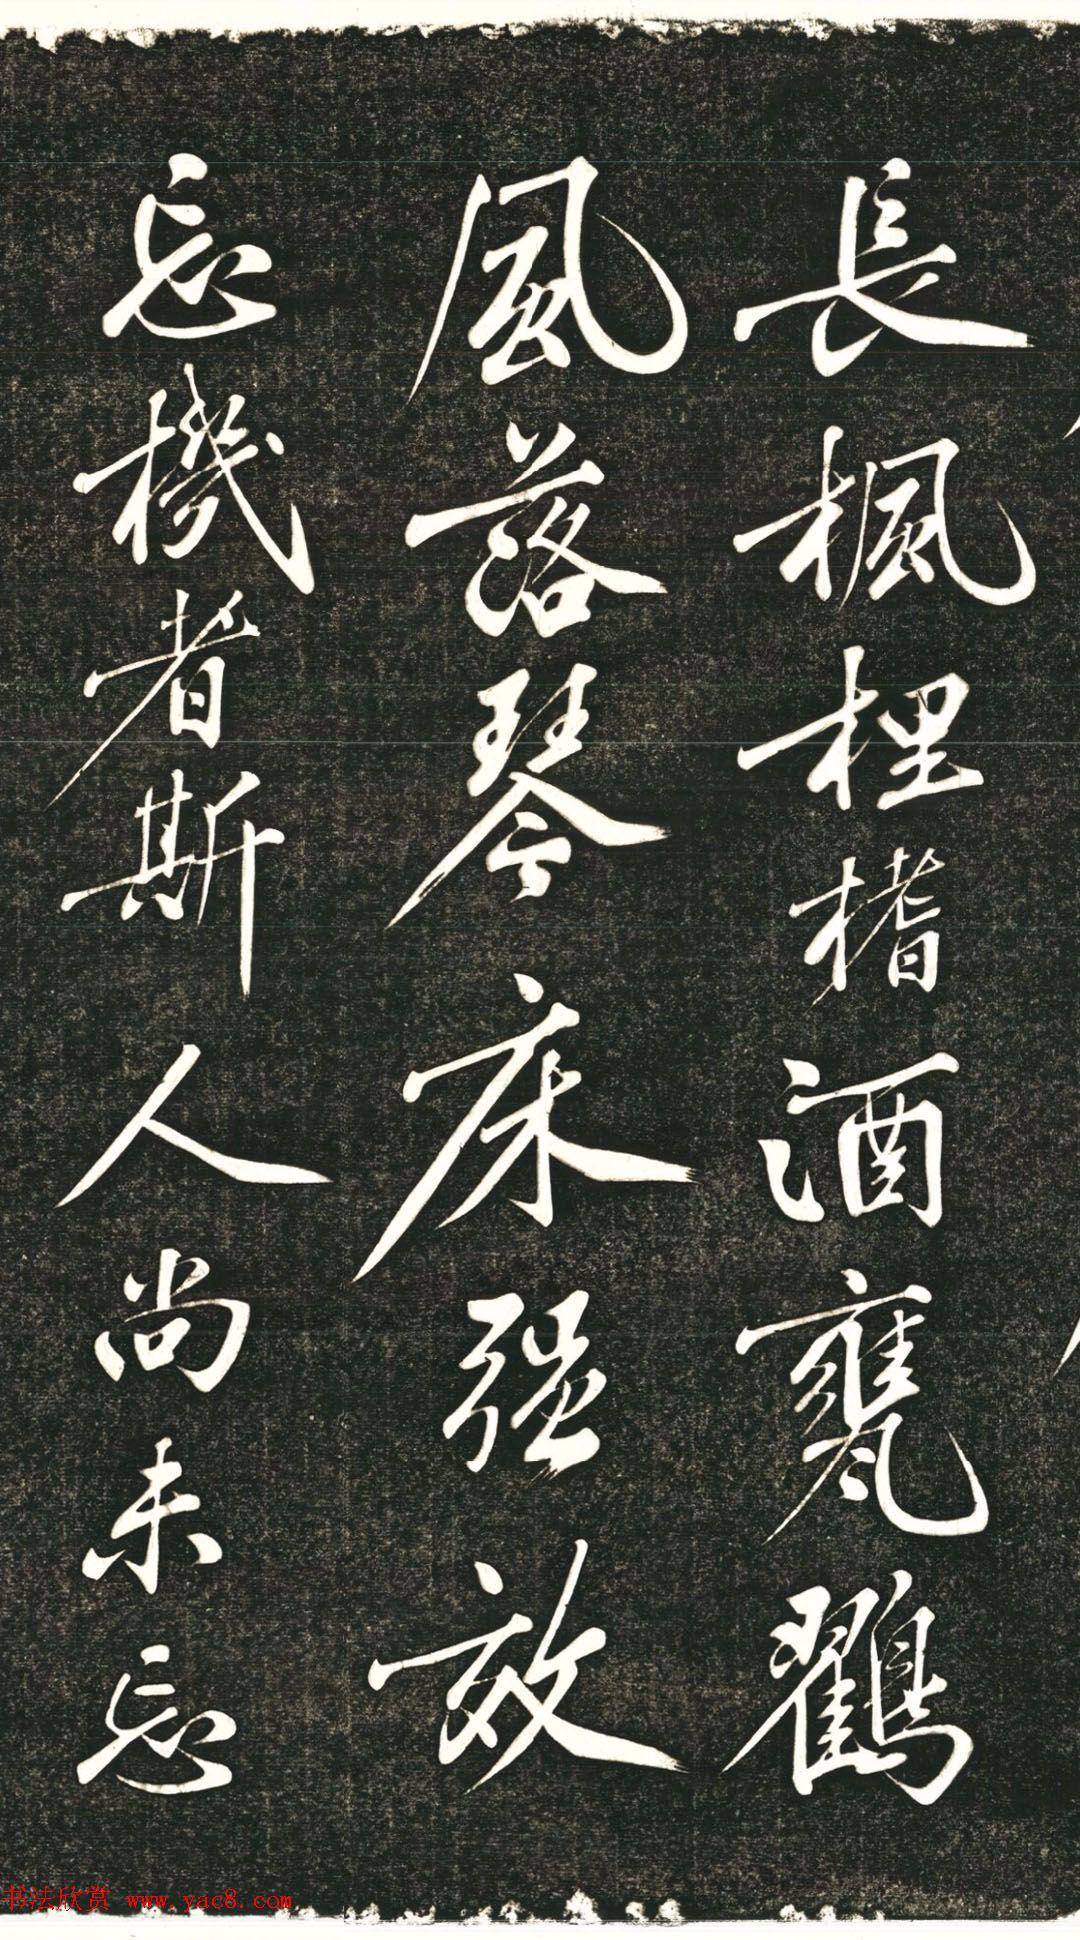 長楓桯榰酒甕鸛
風落琴床强效
忘機者斯人尚未忘
书法欣赏 www.yac8.com